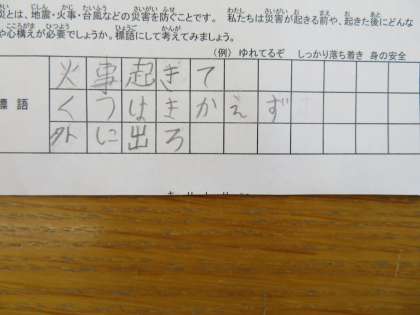 災とは、地震・火事・台風などの災害を防ぐことです。 私たちは災害が起きる前や、起きた後にどんな
や心構えが必要でしょうか。標語にして考えてみましょう。
(例) ゆれてるぞ しっかり落ち着き 身の安全
標語
火事起きて
くつはきかえず
外に出ろ